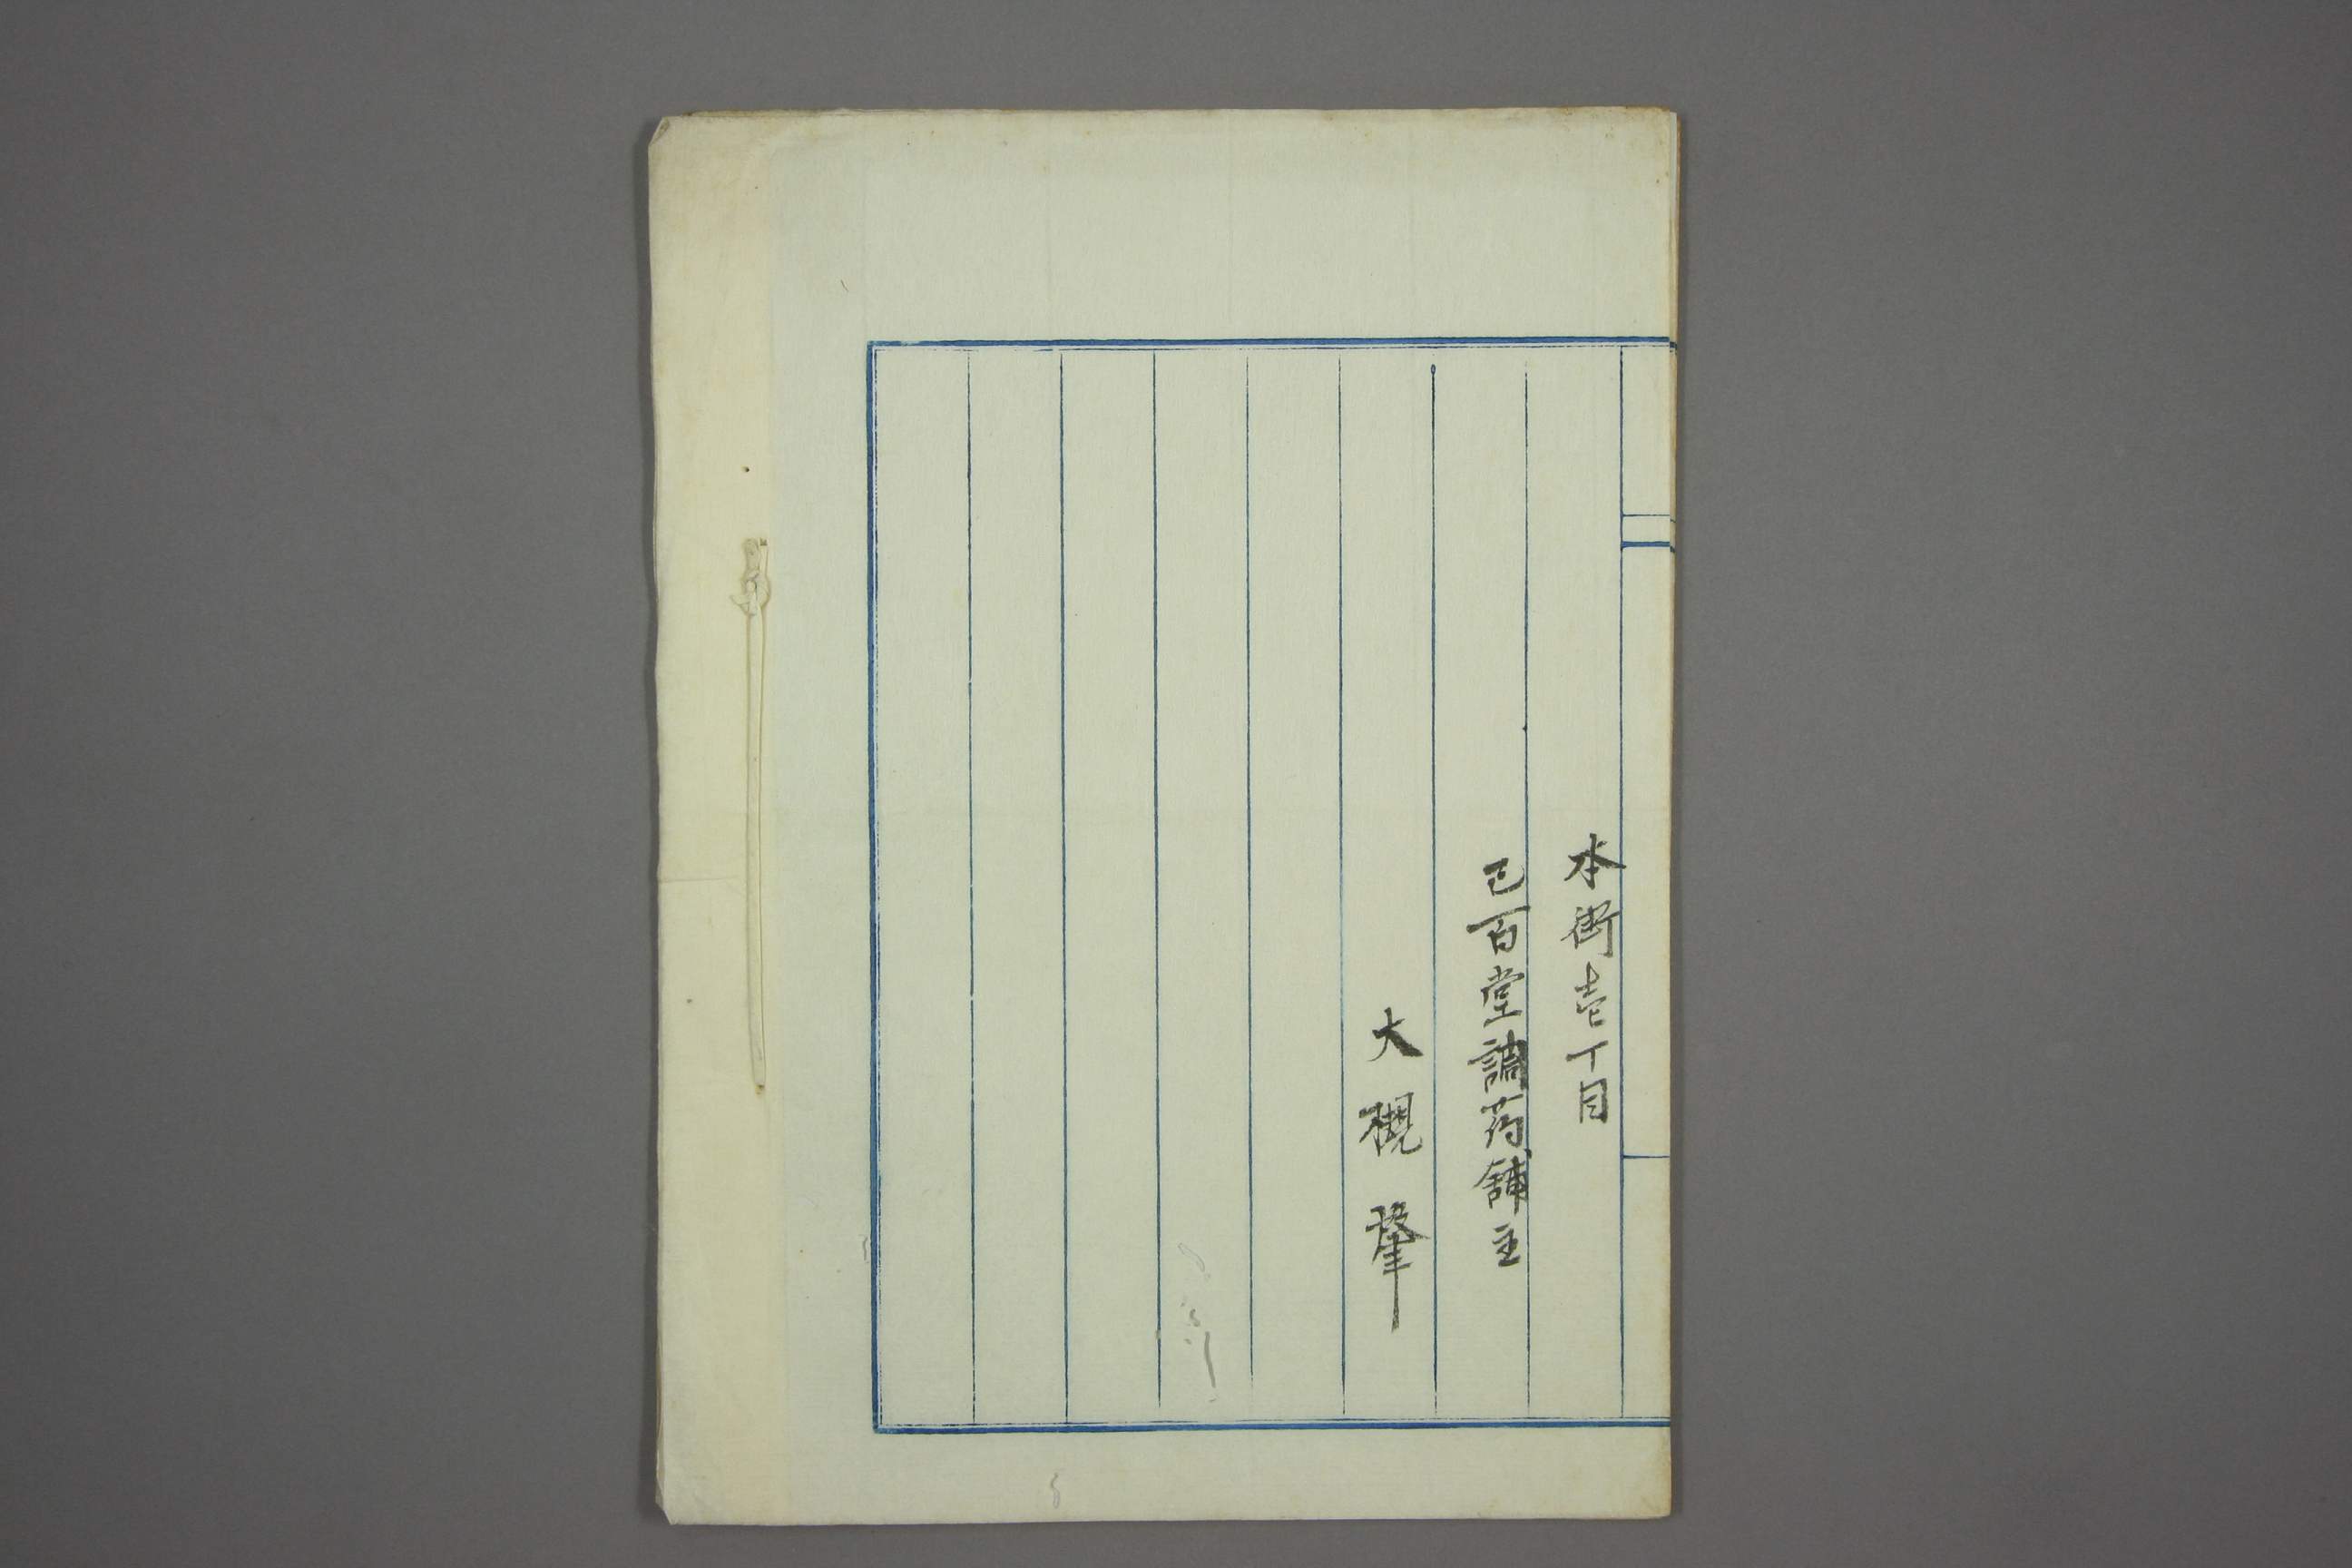 本街壱丁目
已百堂調药舗主
大槻肇